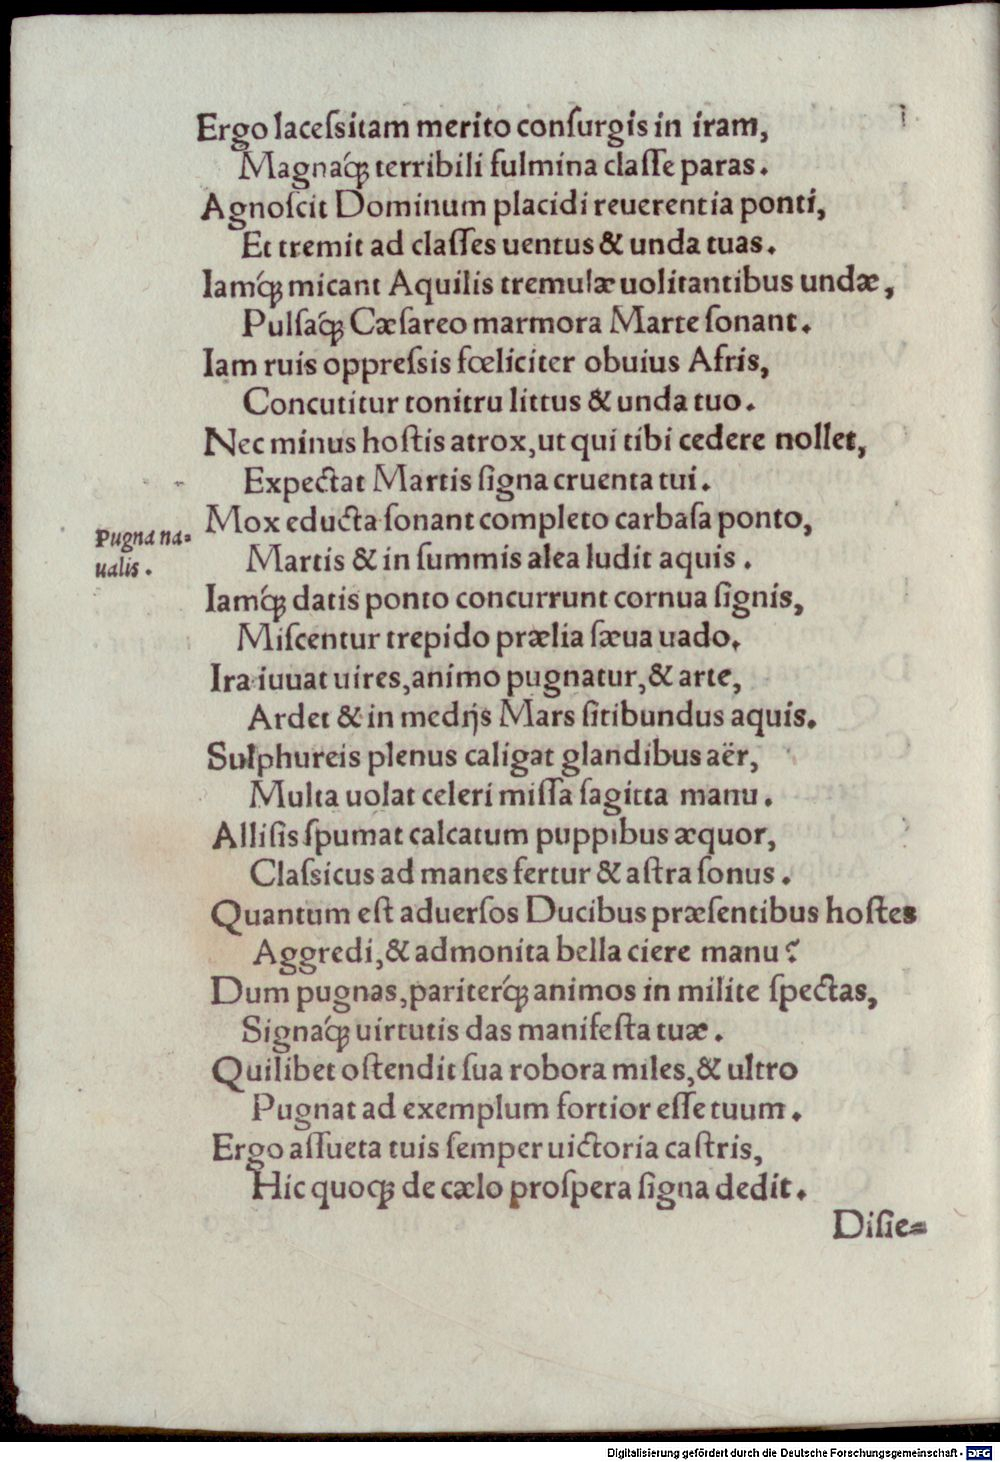 Ergo lacesſitam merito conſurgis in iram,
Magnaq́ꝫ terribili fulmina claſſe paras.
Agnoſcit Dominum placidi reuerentia ponti,
Et tremit ad claſſes uentus & unda tuas.
Iamq́ꝫ micant Aquilis tremulæ uolitantibus undæ,
Pulſaq́ꝫ Cæſareo marmora Marte ſonant.
Iam ruis oppresſis fœliciter obuius Afris,
Concutitur tonitru littus & unda tuo.
Nec minus hoſtis atrox, ut qui tibi cedere nollet,
Expectat Martis ſigna cruenta tui.
Pugna na=
ualis.
Mox educta ſonant completo carbaſa ponto,
Martis & in ſummis alea ludit aquis.
Iamq́ꝫ datis ponto concurrunt cornua ſignis,
Miſcentur trepido prælia ſæua uado.
Ira iuuat uires, animo pugnatur, & arte,
Ardet & in medijs Mars ſitibundus aquis.
Sulphureis plenus caligat glandibus aër,
Multa uolat celeri miſſa ſagitta manu.
Alliſis ſpumat calcatum puppibus æquor,
Clasſicus ad manes fertur & aſtra ſonus.
Quantum eſt aduerſos Ducibus præſentibus hoſtes
Aggredi, & admonita bella ciere manu?
Dum pugnas, pariterq́ꝫ animos in milite ſpectas,
Signaq́ꝫ uirtutis das manifeſta tuæ.
Quilibet oſtendit ſua robora miles, & ultro
Pugnat ad exemplum fortior eſſe tuum.
Ergo aſſueta tuis ſemper uictoria caſtris,
Hic quoqꝫ de cælo proſpera ſigna dedit.
Diſie=
Digitalisierung gefördert durch die Deutsche Forschungsgemeinschaft - DFG